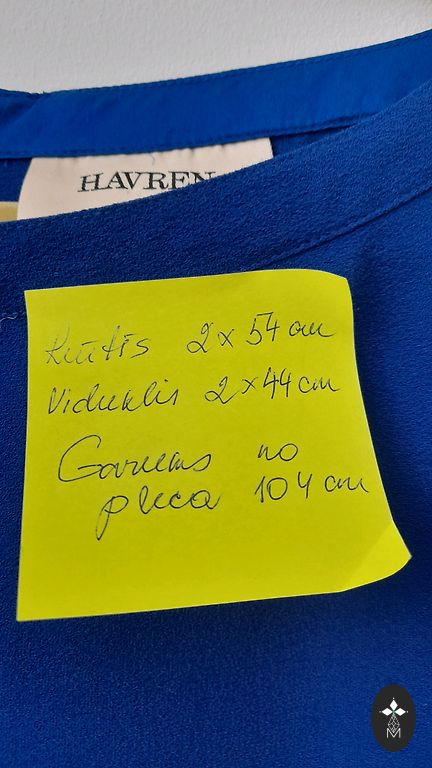 HAVREN
Krūtīs 2x54 cm
Viduklis 2x44 cm
Garums no
pleca 104 cm
M